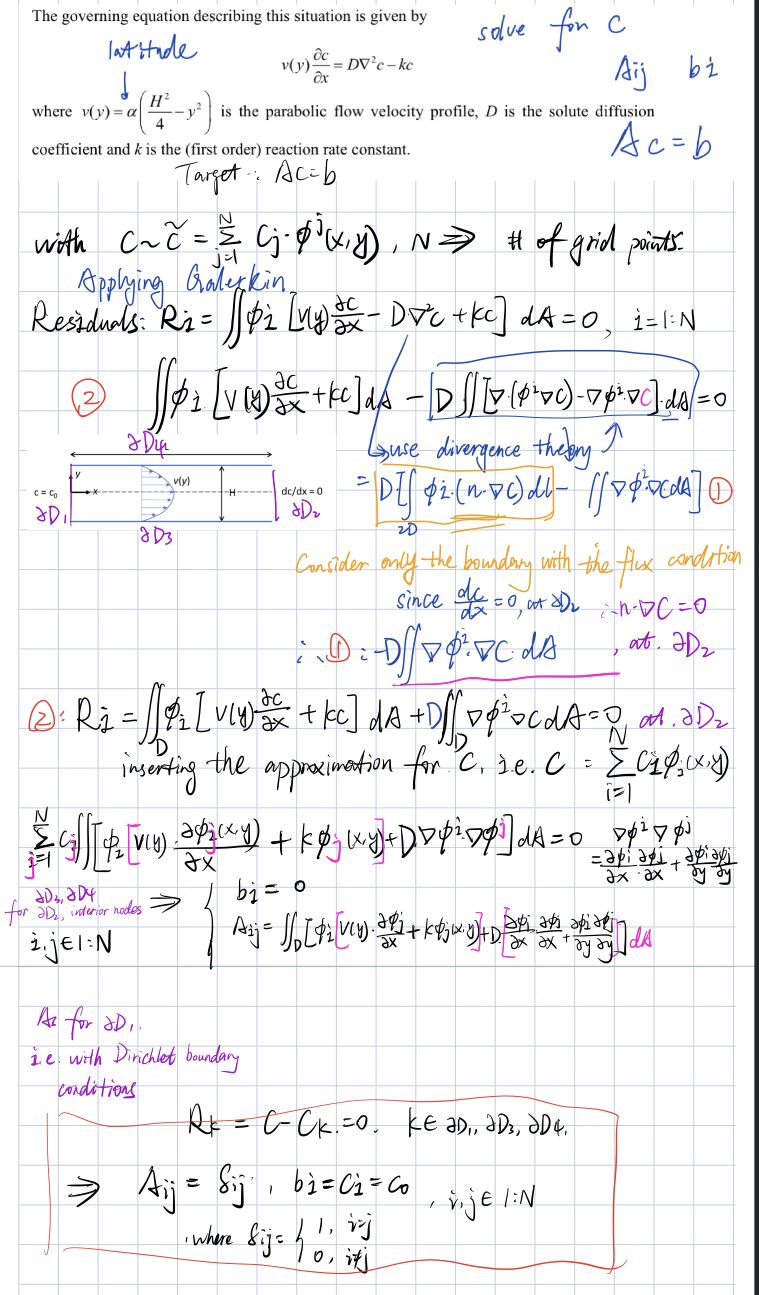 The governing equation describing this situation is given by
solve for C
latitude
v(y) ∂c/∂x = D∇²c − kc
Aij bi
where v(y) = α(H²/4 − y²) is the parabolic flow velocity profile, D is the solute diffusion
coefficient and k is the (first order) reaction rate constant.
Ac = b
Target: AC=b
with C ~ c̃ = Σ_{j=1}^{N} Cj·ϕ^j(x,y), N ⇒ # of grid points.
Applying Galerkin
Residuals: Ri = ∬ϕi [v(y)∂c/∂x − D∇²c + kc] dA = 0, i=1:N
② ∬ϕi [v(y)∂c/∂x + kc] dA − [D∬[∇·(ϕ^i∇c) − ∇ϕ^i·∇C]·dA] = 0
∂D4
use divergence theory
c = c₀
y
x
v(y)
H
dc/dx = 0
∂D1
∂D2
∂D3
= D[∫∫_{∂D} ϕi·(n·∇c)dl − ∬∇ϕ^i·∇c dA] ①
Consider only the boundary with the flux condition
since dc/dx = 0, at ∂D2 ∴ n·∇C = 0
∴ ①: −D∬∇ϕ^i·∇C·dA, at. ∂D2
②: Ri = ∬_D ϕi [v(y)∂c/∂x + kc] dA + D∬_D ∇ϕ^i·∇c dA = 0, at. ∂D2
inserting the approximation for C, i.e. C = Σ_{i=1}^{N} Ciϕi(x,y)
Σ_{j=1}^{N} Cj∬[ϕi[v(y)·∂ϕj(x,y)/∂x + kϕj(x,y)] + D·∇ϕ^i·∇ϕ^j] dA = 0 ∇ϕ^i ∇ϕ^j
= ∂ϕi/∂x ∂ϕj/∂x + ∂ϕi/∂y ∂ϕj/∂y
∂D3, ∂D4
for ∂D2, interior nodes ⇒ { bi = 0
i,j ∈ 1:N
Aij = ∬_D [ϕi[v(y)·∂ϕj/∂x + kϕj(x,y)] + D·[∂ϕi/∂x·∂ϕj/∂x + ∂ϕi/∂y ∂ϕj/∂y]] dA
As for ∂D1.
i.e. with Dirichlet boundary
conditions
Rk = C − Ck = 0. k ∈ ∂D1, ∂D3, ∂D4.
⇒ Aij = δij, bi = Ci = C₀, i,j ∈ 1:N
, where δij = { 1, i=j
0, i≠j